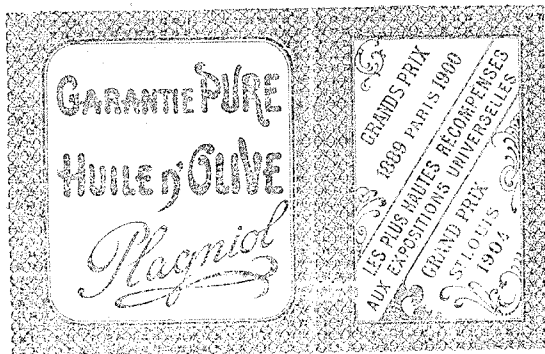 GARANTIE PURE
HUILE D'OLIVE
Plagniol
GRANDS PRIX
1889 PARIS 1900
LES PLUS HAUTES RÉCOMPENSES
AUX EXPOSITIONS UNIVERSELLES
GRAND PRIX
ST LOUIS
1904